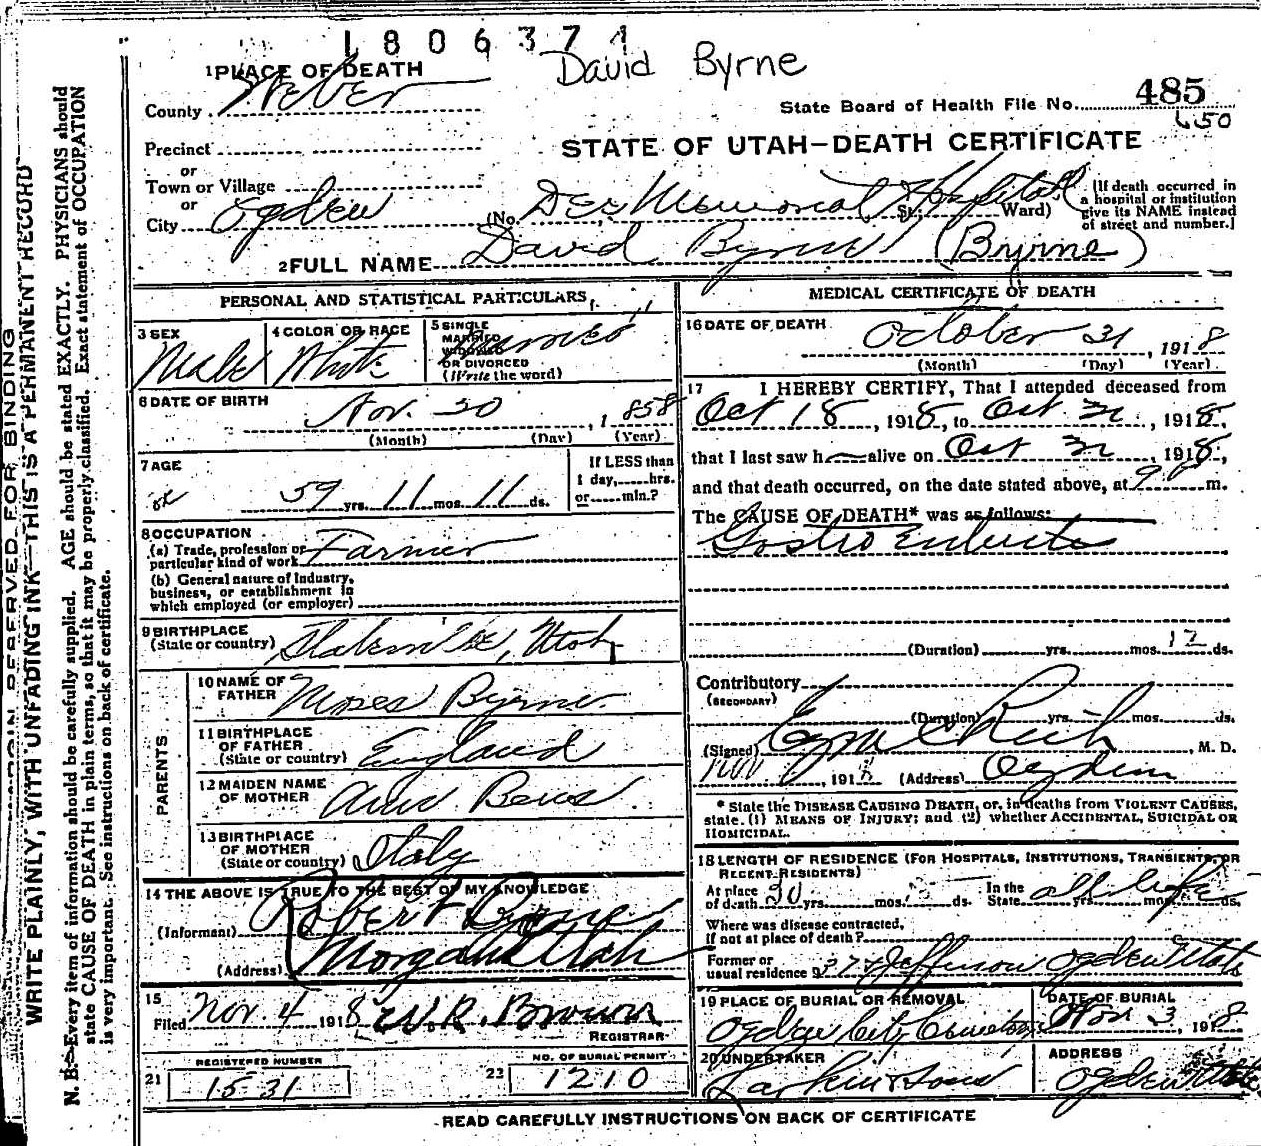 1806371
David Byrne
1 PLACE OF DEATH
County Weber
State Board of Health File No. 485
650
Precinct
STATE OF UTAH—DEATH CERTIFICATE
or
Town or Village
or
City Ogden
(No. Dee Memorial Hospital St.; Ward)
(If death occurred in
a hospital or institution
give its NAME instead
of street and number.)
2 FULL NAME David Byrne (Byrne)
PERSONAL AND STATISTICAL PARTICULARS
3 SEX
Male
4 COLOR OR RACE
White
5 SINGLE
MARRIED
WIDOWED
OR DIVORCED
(Write the word)
Married
6 DATE OF BIRTH
Nov. 20, 1858
(Month) (Day) (Year)
7 AGE
59 yrs. 11 mos. 11 ds.
If LESS than
1 day, hrs.
or min.?
8 OCCUPATION
(a) Trade, profession or
particular kind of work Farmer
(b) General nature of Industry,
business, or establishment in
which employed (or employer)
9 BIRTHPLACE
(State or country) Utah
PARENTS
10 NAME OF
FATHER Moses Byrne
11 BIRTHPLACE
OF FATHER
(State or country) England
12 MAIDEN NAME
OF MOTHER
13 BIRTHPLACE
OF MOTHER
(State or country) Italy
14 THE ABOVE IS TRUE TO THE BEST OF MY KNOWLEDGE
(Informant) Robert Byrne
(Address) Morgan Utah
15
Filed Nov. 4 1918 W.R. Brown
REGISTRAR
REGISTERED NUMBER
21 1531
NO. OF BURIAL PERMIT
23 1210
MEDICAL CERTIFICATE OF DEATH
16 DATE OF DEATH
October 31, 1918
(Month) (Day) (Year)
17 I HEREBY CERTIFY, That I attended deceased from
Oct 18, 1918, to Oct 31, 1918,
that I last saw h alive on Oct 31, 1918,
and that death occurred, on the date stated above, at 9 P m.
The CAUSE OF DEATH* was as follows:
Gastro Enteritis
(Duration) yrs. mos. 12 ds.
Contributory
(SECONDARY)
(Duration) yrs. mos. ds.
(Signed) Rich M. D.
Nov, 1918 (Address) Ogden
* State the DISEASE CAUSING DEATH, or, in deaths from VIOLENT CAUSES,
state (1) MEANS OF INJURY; and (2) whether ACCIDENTAL, SUICIDAL OR
HOMICIDAL.
18 LENGTH OF RESIDENCE (FOR HOSPITALS, INSTITUTIONS, TRANSIENTS, OR
RECENT RESIDENTS)
At place
of death 30 yrs. mos. ds.
In the
State all life yrs. mos. ds.
Where was disease contracted,
If not at place of death?
Former or
usual residence Jefferson Ogden Utah
19 PLACE OF BURIAL OR REMOVAL
Ogden City Cemetery
DATE OF BURIAL
Nov. 3, 1918
20 UNDERTAKER
Larkin & Sons
ADDRESS
Ogden Utah
READ CAREFULLY INSTRUCTIONS ON BACK OF CERTIFICATE
WRITE PLAINLY, WITH UNFADING INK—THIS IS A PERMANENT RECORD
MARGIN RESERVED FOR BINDING
N. B.—Every item of information should be carefully supplied. AGE should be stated EXACTLY. PHYSICIANS should
state CAUSE OF DEATH in plain terms, so that it may be properly classified. Exact statement of OCCUPATION
is very important. See instructions on back of certificate.